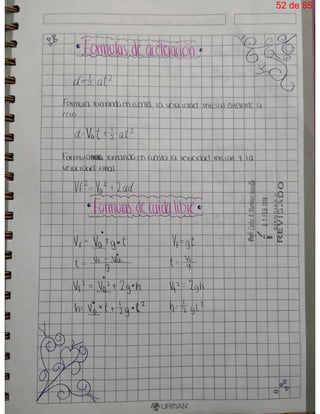 52 de 85
• Formulas de aceleración •
d=½at²
Formula tomando en cuenta la velocidad inicial diferente a
cero
d=V₀t+½at²
Formula tomando en cuenta la velocidad inicial y la
velocidad final
Vf²=V₀²+2ad
• Formulas de caida libre •
Vf=V₀+g•t Vf=gt
t=Vf-V₀/g t=Vf/g
Vf²=V₀²+2g•h Vf²=2gh
h=V₀•t+½g•t² h=½gt²
REVISADO
URMAN